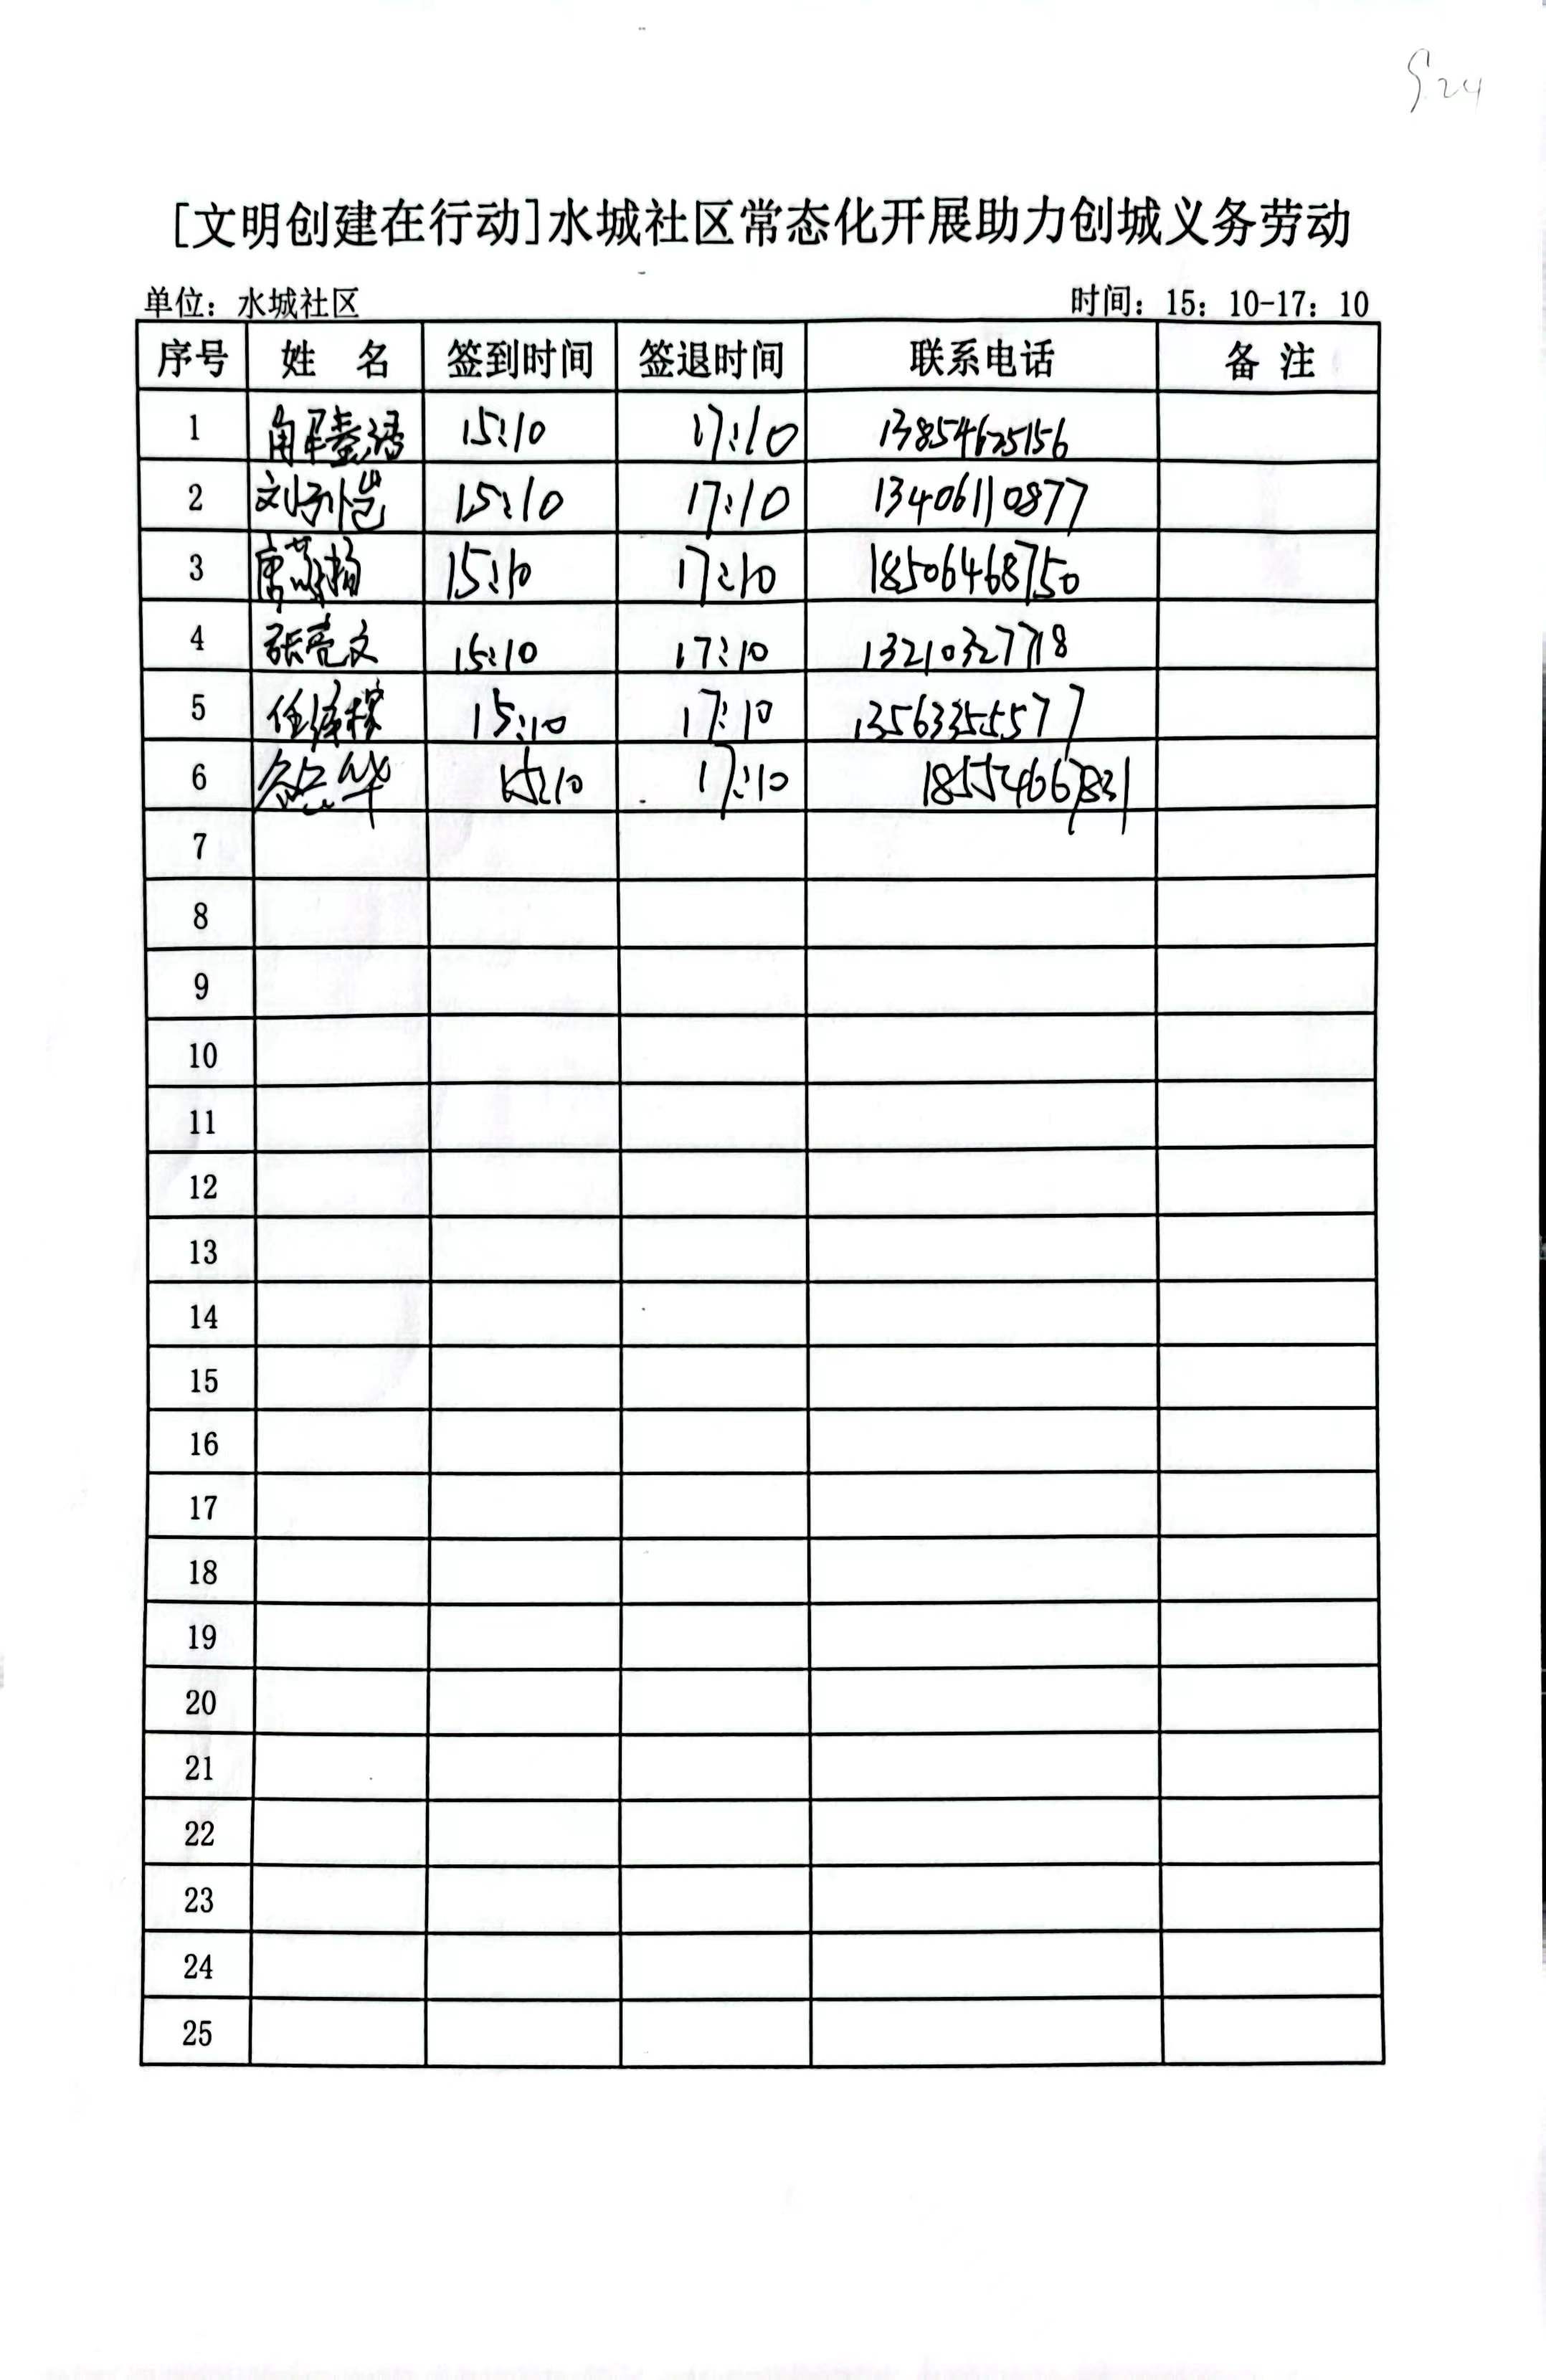 9.24
[文明创建在行动]水城社区常态化开展助力创城义务劳动
单位：水城社区 时间：15：10-17：10
序号 姓 名 签到时间 签退时间 联系电话 备 注
1 15:10 17:10 13854625156
2 15:10 17:10 13406110877
3 15:10 17:10 18506468750
4 张亮文 15:10 17:10 13210327718
5 15:10 17:10 13563355577
6 15:10 17:10 18554667831
7
8
9
10
11
12
13
14
15
16
17
18
19
20
21
22
23
24
25